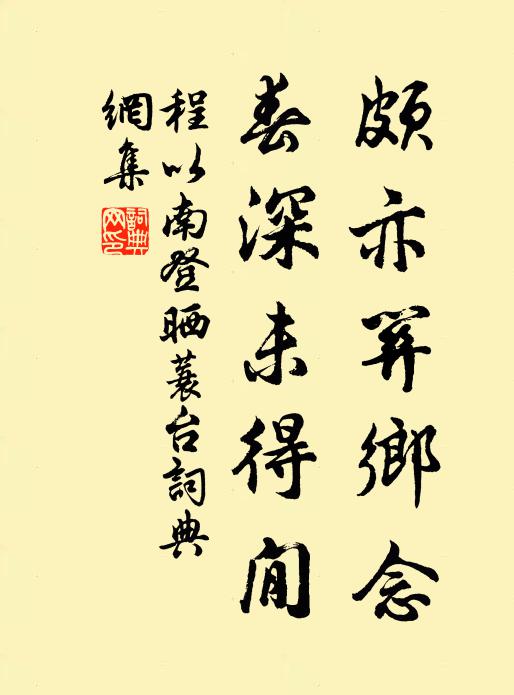 頗亦關鄉念
春深未得閒
程以南登晒蓑台詞典
網集
詞典網印